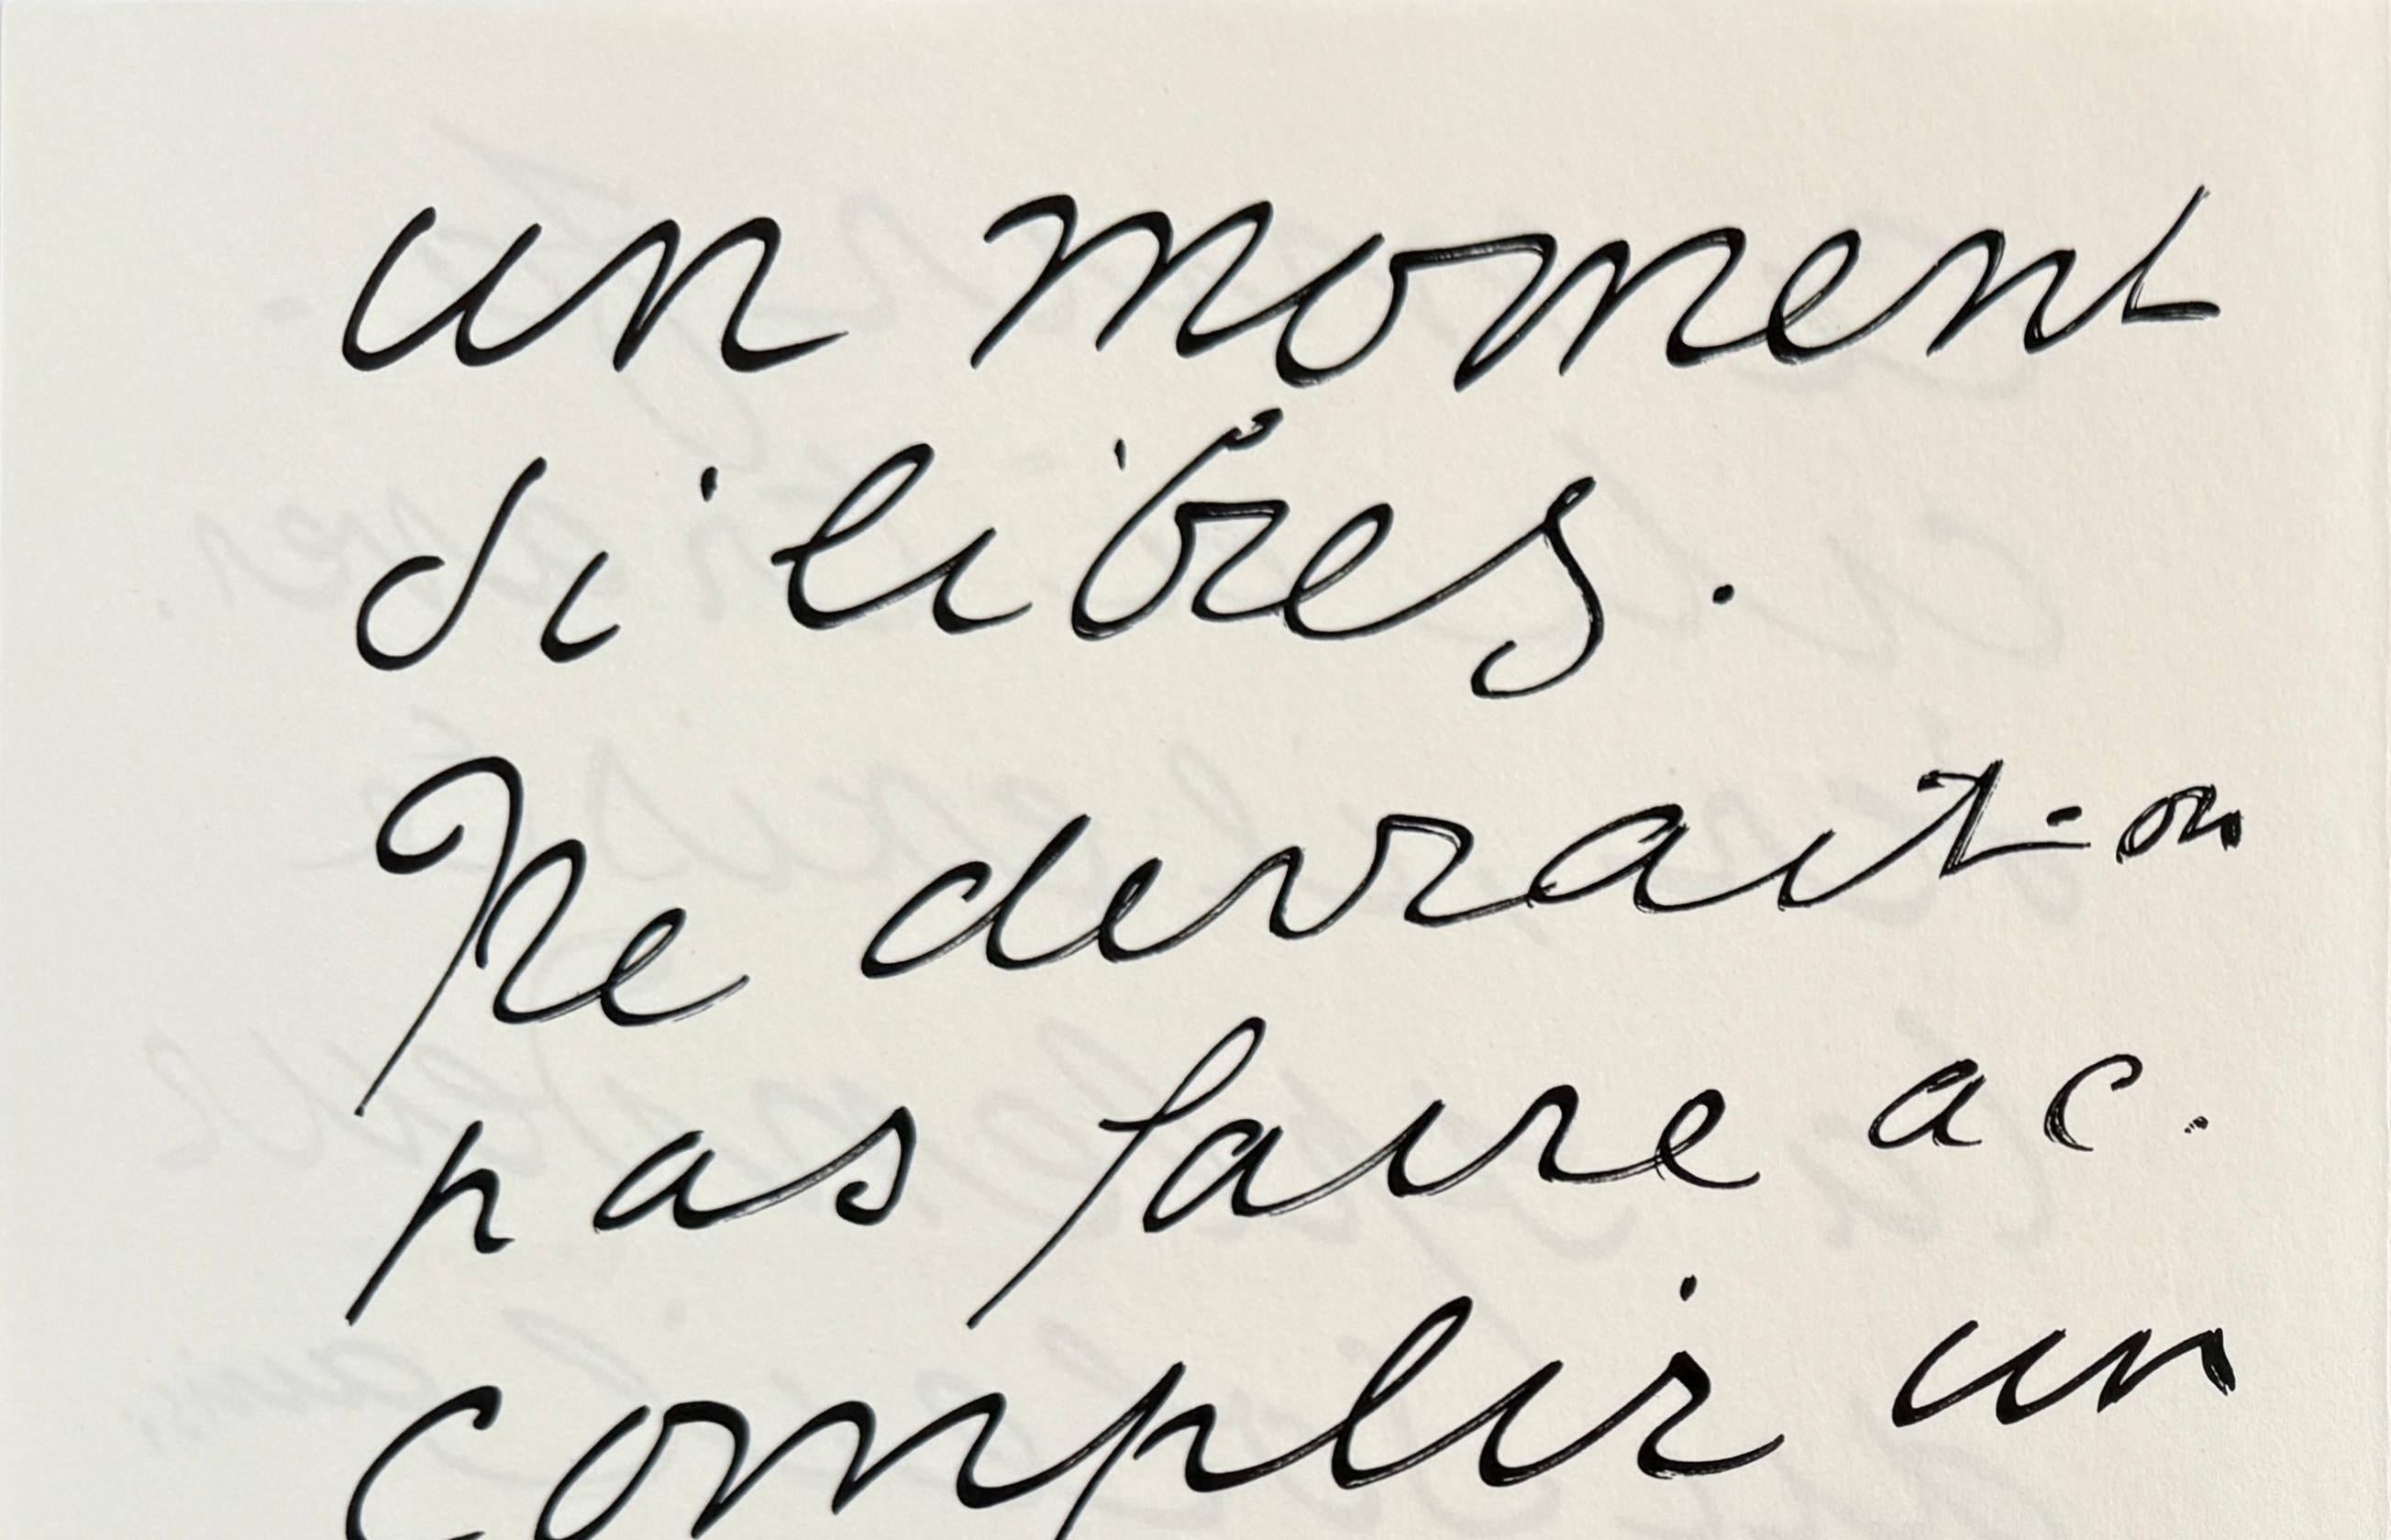 un moment
si libres.
Ne devrait-on
pas faire ac.
complir un